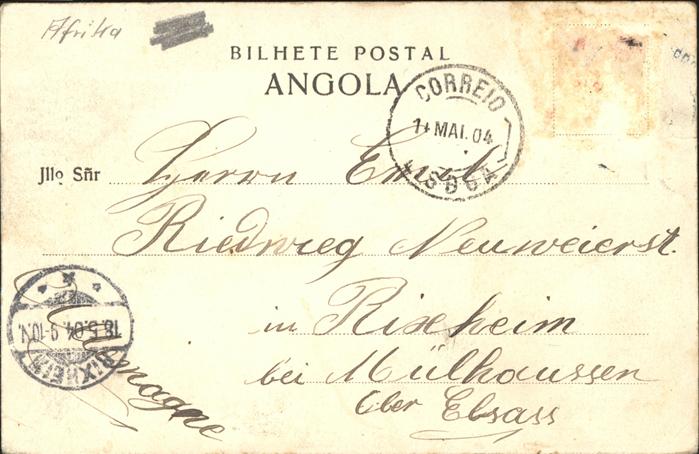 Afrika
BILHETE POSTAL
ANGOLA
CORREIO
14 MAI. 04
LISBOA
Jllo Sñr Herrn Emil
Riedwieg Neuweierst.
in Rixheim
bei Mülhaussen
Ober Elsass
Allemagne
18.5.04 9-10.N.
RIXHEIM